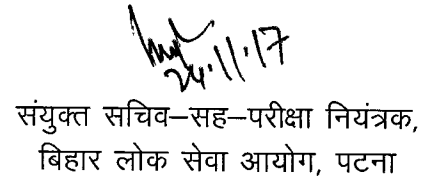 24.11.17
संयुक्त सचिव–सह–परीक्षा नियंत्रक,
बिहार लोक सेवा आयोग, पटना